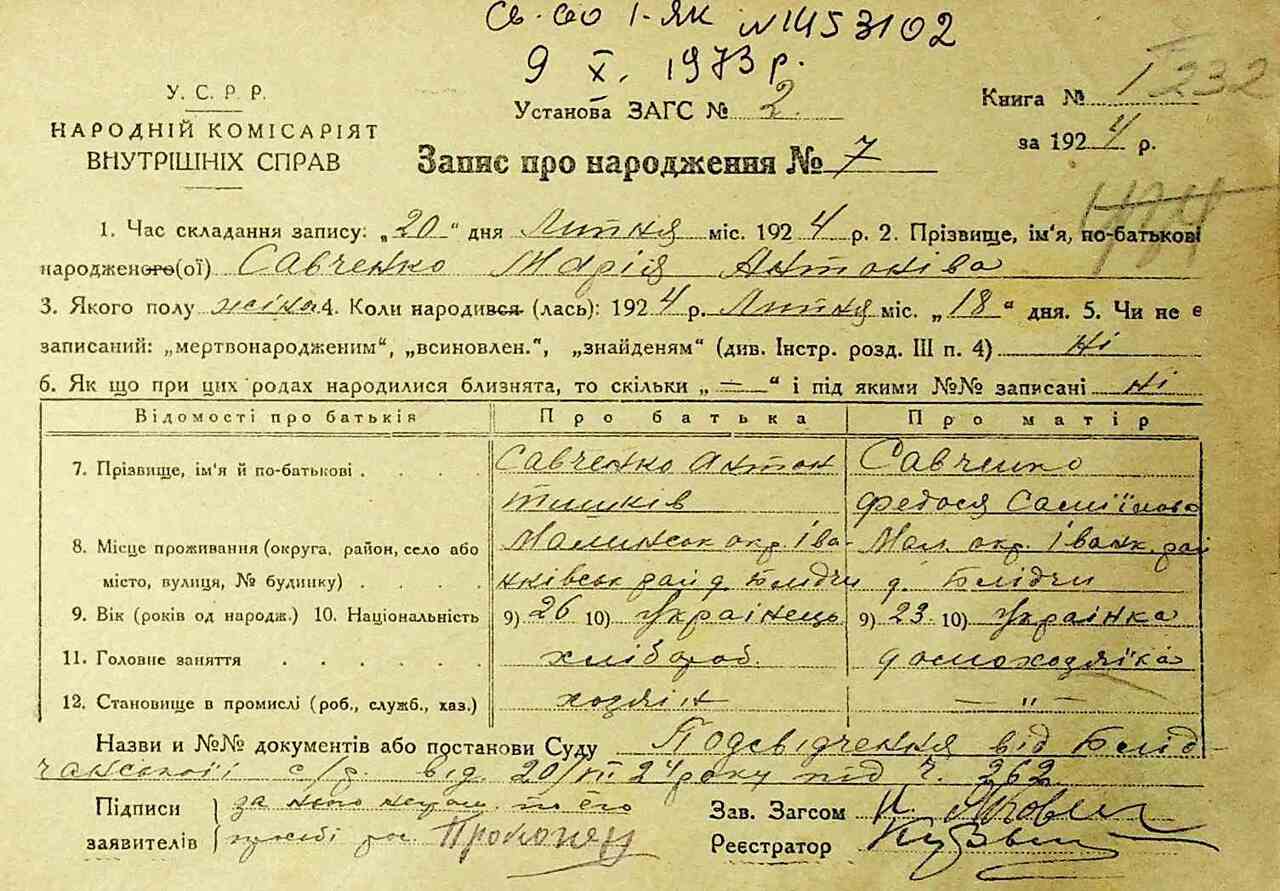 Св-во І-ЯК №1453102
9 X. 1973 р.
У. С. Р. Р.
НАРОДНІЙ КОМІСАРІЯТ
ВНУТРІШНІХ СПРАВ
Установа ЗАГС № 2
Книга № 1 232
за 1924 р.
Запис про народження № 7
1. Час складання запису: „20“ дня Липня міс. 1924 р. 2. Прізвище, ім'я, по-батькові
народженого(ої) Савченко Марія Антоніва
3. Якого полу жіна 4. Коли народився (лась): 1924 р. Липня міс. „18“ дня. 5. Чи не є
записаний: „мертвонародженим“, „всиновлен.“, „знайденям“ (див. Інстр. розд. III п. 4) Ні
6. Як що при цих родах народилися близнята, то скільки „—“ і під якими №№ записані ні
Відомості про батьків Про батька Про матір
7. Прізвище, ім'я й по-батькові . . . . Савченко Антон Савченко
Тишків Федося Самійлова
8. Місце проживання (округа, район, село або Малинськ окр. Іва- Мал. окр. Іванк. рай
місто, вулиця, № будинку) . . . . нківськ рай д. Блідчи д. Блідчи
9. Вік (років од народж.) 10. Національність 9) 26 10) Українець 9) 23 10) Українка
11. Головне заняття . . . . . . хлібороб. домохозяїка
12. Становище в промислі (роб., служб., хаз.) хозяїн — „ —
Назви и №№ документів або постанови Суду Подсвідчення від Блід
чанської с/р. від 20/VII 24 року під ч. 262
Підписи за його
заявителів просьбі рос Прокопец
Зав. Загсом
Реєстратор